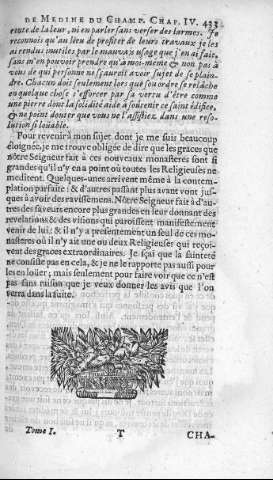 DE MEDINE DU CHAMP. CHAP. IV. 433
rente de la leur, ni en parler sans verser des larmes. Je
reconnois qu'au lieu de profiter de leurs travaux je les
ai rendus inutiles par le mauvais usage que j'en ai fait,
sans m'en pouvoir prendre qu'à moi-même & non pas à
vous de qui personne ne sçauroit avoir sujet de se plain-
dre. Chacun doit seulement lors que son ordre se relâche
en quelque chose s'efforcer par sa vertu d'être comme
une pierre dont la solidité aide à soûtenir ce saint édifice,
& ne point douter que vous ne l'assistiez dans une reso-
lution si loüable.
Pour revenir à mon sujet dont je me suis beaucoup
éloignée, je me trouve obligée de dire que les graces que
nôtre Seigneur fait à ces nouveaux monasteres sont si
grandes qu'il n'y en a point où toutes les Religieuses ne
meditent. Quelques-unes arrivent même à la contem-
plation parfaite: & d'autres passant plus avant vont jus-
ques à avoir des ravissemens. Nôtre Seigneur fait à d'au-
tres des faveurs encore plus grandes en leur donnant des
revelations & des visions qui paroissent manifestement
venir de lui: & il n'y a presentement un seul de ces mo-
nasteres où il n'y ait une ou deux Religieuses qui reçoi-
vent des graces extraordinaires. Je sçai que la sainteté
ne consiste pas en cela, & je ne le rapporte pas aussi pour
les en loüer; mais seulement pour faire voir que ce n'est
pas sans raison que je veux donner les avis que l'on
verra dans la suite.
Tome I. T CHA-